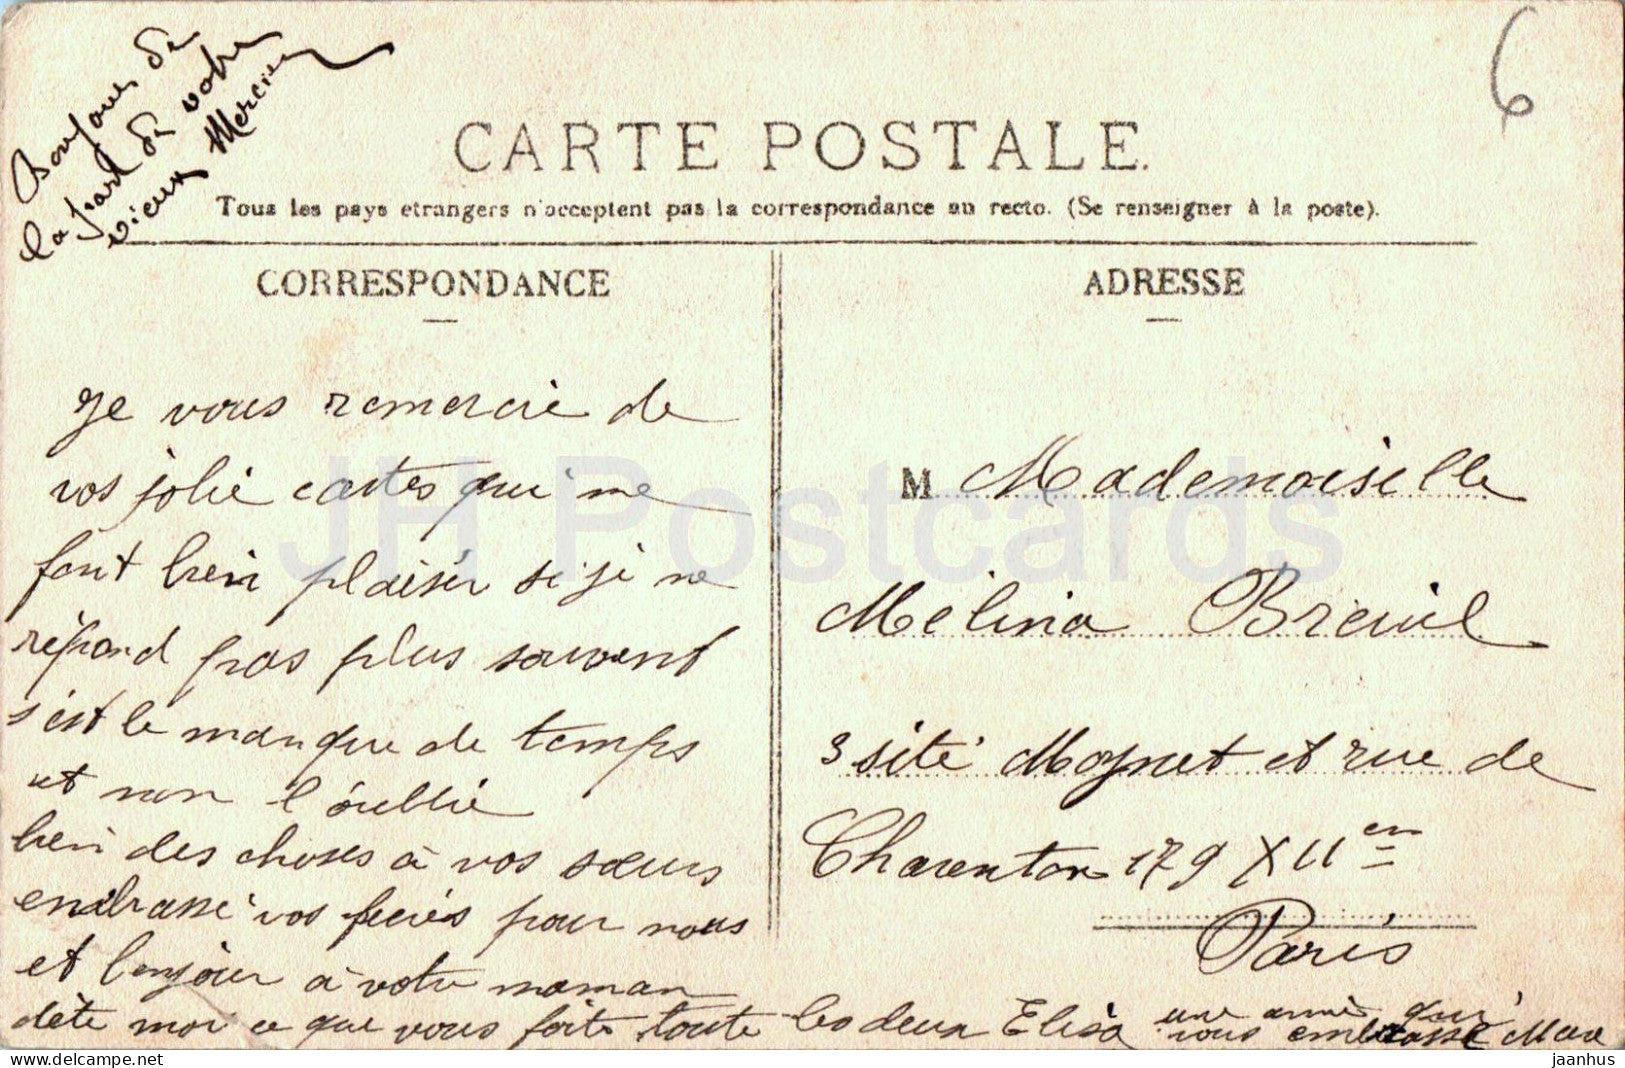 Bonjour de
la part de votre
vieux Mercier
6
CARTE POSTALE.
Tous les pays etrangers n'acceptent pas la correspondance au recto. (Se renseigner à la poste).
CORRESPONDANCE
Je vous remercie de
vos jolie cartes qui me
font bien plaisir si je ne
répond pas plus souvent
s'est le manque de temps
et non l'oublie
bien des choses à vos sœurs
embrassé vos pour nous
et bonjour à votre maman
dète moi ce que vous faite toute les deux Elisa
une amie qui
vous embrasse Max
ADRESSE
M Mademoiselle
Mélina Breuil
3 sité Moynet et rue de
Charenton 179 XIIem
Paris
JH Postcards
delcampe.net
jaanhus